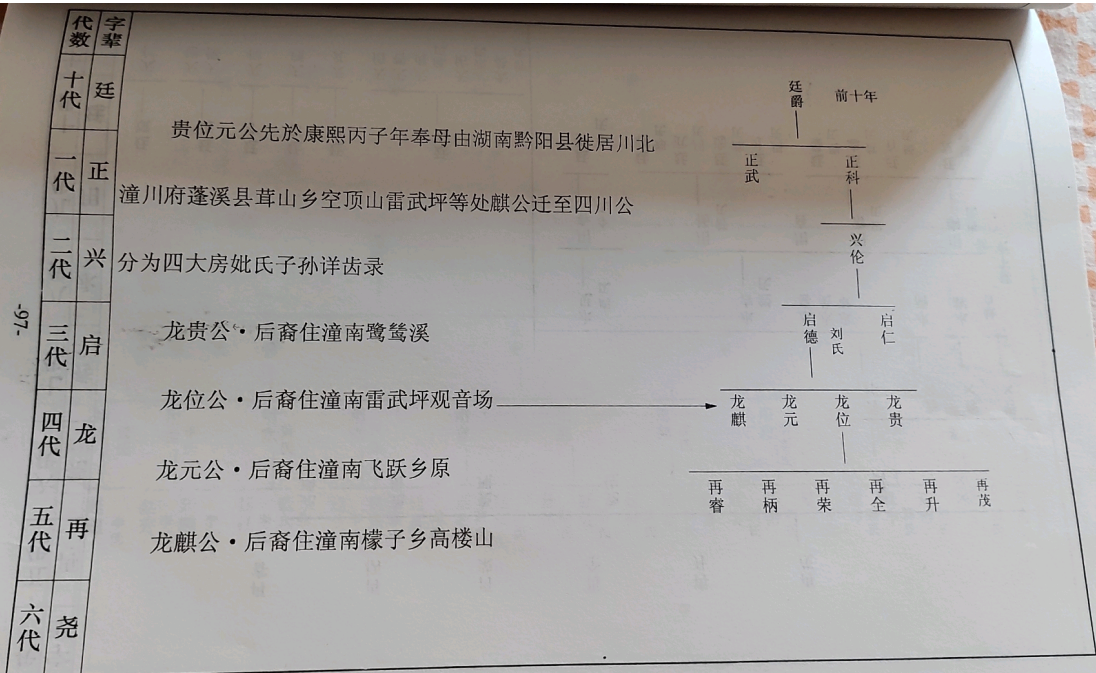 代数 字辈
十代 廷
一代 正
二代 兴
三代 启
四代 龙
五代 再
六代 尧
-97-
贵位元公先於康熙丙子年奉母由湖南黔阳县徙居川北
潼川府蓬溪县茸山乡空顶山雷武坪等处麒公迁至四川公
分为四大房妣氏子孙详齿录
龙贵公·后裔住潼南鹭鸶溪
龙位公·后裔住潼南雷武坪观音场
龙元公·后裔住潼南飞跃乡原
龙麒公·后裔住潼南檬子乡高楼山
廷爵 前十年
正武 正科
兴伦
启德 刘氏 启仁
龙麒 龙元 龙位 龙贵
再睿 再柄 再荣 再全 再升 再茂